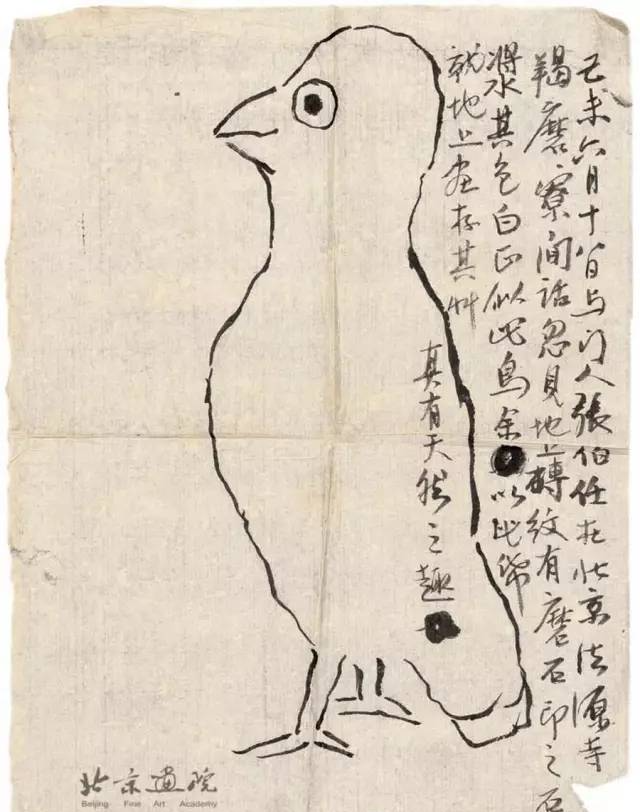 己未六月十八日与门人張伯任在北京法源寺
羯磨寮间话忽見地上磚紋有磨石印之石
漿其色白正似此鳥余以此紙
就地上画存其艸
真有天然之趣
北京画院
Beijing Fine Art Academy